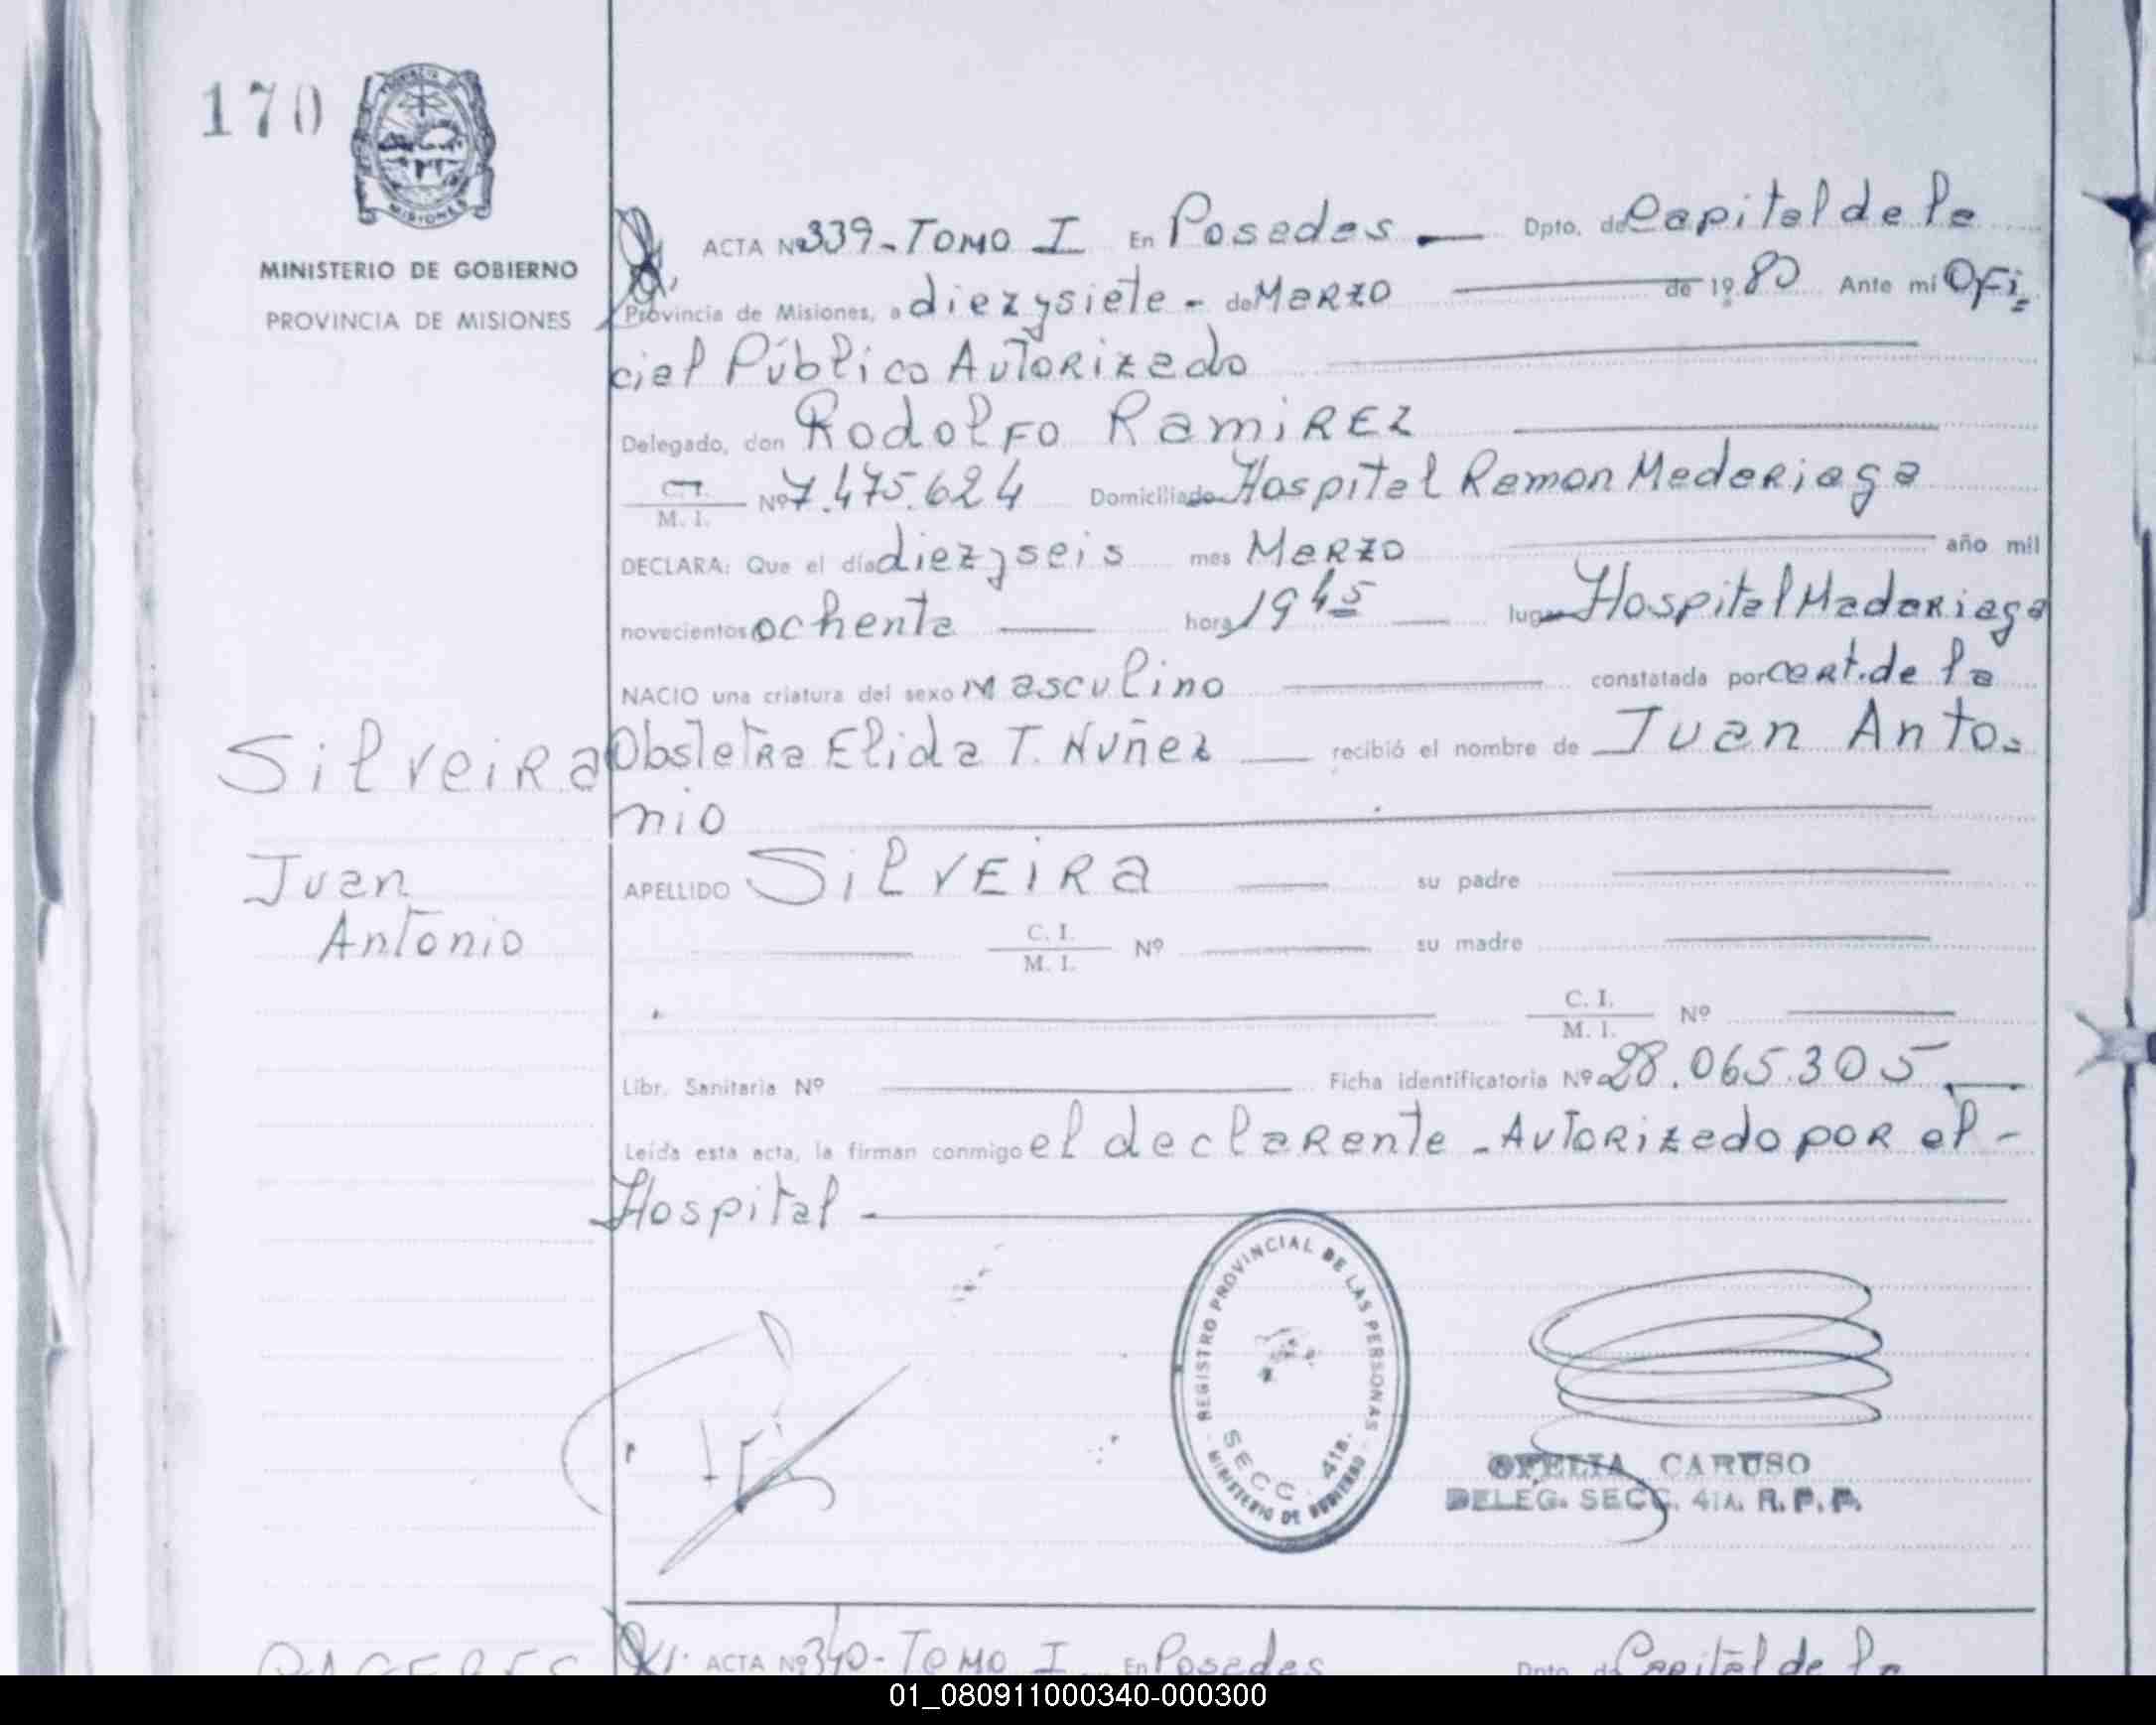 170
MINISTERIO DE GOBIERNO
PROVINCIA DE MISIONES
ACTA Nº 339 - TOMO I En Posadas — Dpto. de Capital de la
Provincia de Misiones, a diez y siete - de Marzo — de 1980 Ante mí Ofi-
cial Público Autorizado
Delegado, don Rodolfo Ramirez
C. I. / M. I. Nº 7.475.624 Domiciliado Hospital Ramon Madariaga
DECLARA: Que el día diez y seis mes Marzo — año mil
novecientos ochenta — hora 19 45 — lugar Hospital Madariaga
NACIO una criatura del sexo masculino — constatada por cert. de la
Obstetra Elida T. Nuñez — recibió el nombre de Juan Anto-
nio
Silveira
Juan
Antonio
APELLIDO Silveira — su padre —
— C. I. / M. I. Nº — su madre —
— C. I. / M. I. Nº —
Libr. Sanitaria Nº — Ficha identificatoria Nº 28.065.305 —
Leída esta acta, la firman conmigo el declarante - Autorizado por el -
Hospital -
REGISTRO PROVINCIAL DE LAS PERSONAS
SECC. 4ta.
MINISTERIO DE GOBIERNO
OFELIA CARUSO
DELEG. SECC. 4TA. R. P. P.
ACTA Nº 340 - TOMO I En Posadas Dpto. de Capital de la
01_080911000340-000300